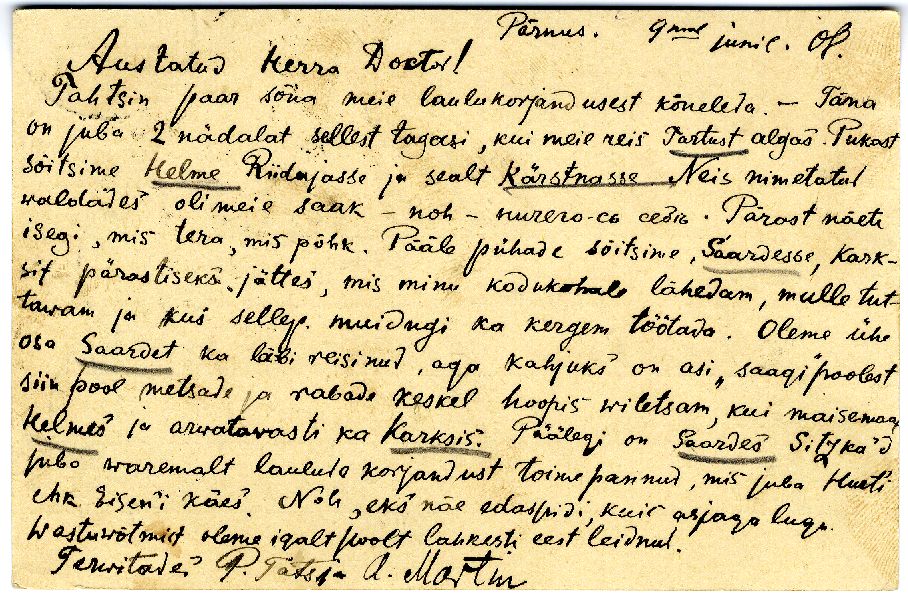 Pärnus. 9mal junil. 08.
Austatud Herra Doctor!
Tahtsin paar sõna meie laulukorjandusest kõneleda. — Täna
on juba 2 nädalat sellest tagasi, kui meie reis Tartust algas. Pukast
sõitsime Helme Riidajasse ja sealt Kärstnasse. Neis nimetatud
waldades oli meie saak – noh – ничего-съ себѣ. Pärast näete
isegi, mis tera, mis põhk. Pääle pühade sõitsime Saardesse, Kark-
sit pärastiseks jättes, mis minu kodukohale lähedam, mulle tut-
tawam ja kus sellep. muidugi ka kergem töötada. Oleme ühe
osa Saardet ka läbi reisinud, aga kahjuks on asi „saagi" poolest
siin pool metsade ja rabade keskel hoopis wiletsam, kui maisemaa
Helmes ja arwatawasti ka Karksis. Päälegi on Saardes
juba waremalt laulude korjandust toimepannud, mis juba Hurti
ehk Eiseni käes. Noh, eks näe edaspidi, kuis asjaga lugu.
Wastuwõtmist oleme igalt poolt lahkesti eest leidnud.
Terwitades P. Täts ja A. Martin